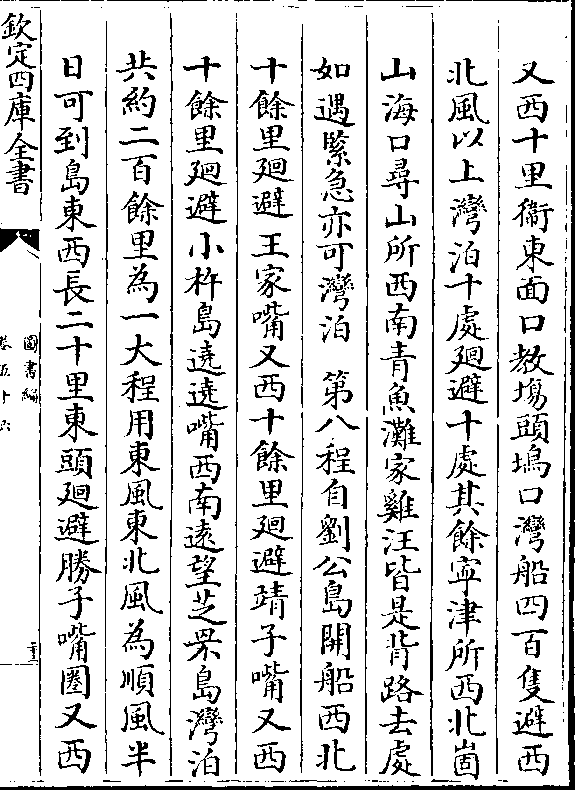 又西十里衞東面口教塲頭塢口灣船四百隻避西
北風以上灣泊十處廻避十處其餘寧津所西北崮
山海口尋山所西南青魚灘家雞汪皆是背路去處
如遇緊急亦可灣泊　第八程自劉公島開船西北
十餘里廻避王家嘴又西十餘里廻避靖子嘴又西
十餘里廻避小杵島遶遶嘴西南遠望芝罘島灣泊
共約二百餘里為一大程用東風東北風為順風半
日可到島東西長二十里東頭廻避勝子嘴圏又西
欽定四庫全書
圖書編
卷五十六